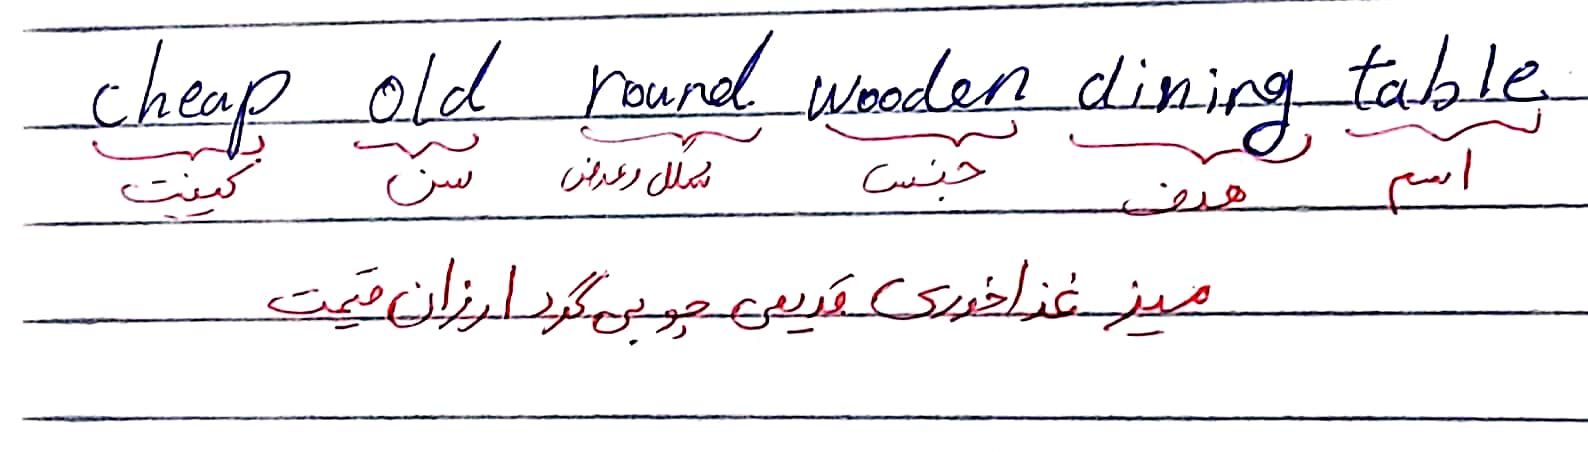 cheap old round wooden dining table
کیفیت سن شکل و عرض جنس هدف اسم
میز غذاخوری قدیمی چوبی گرد ارزان قیمت